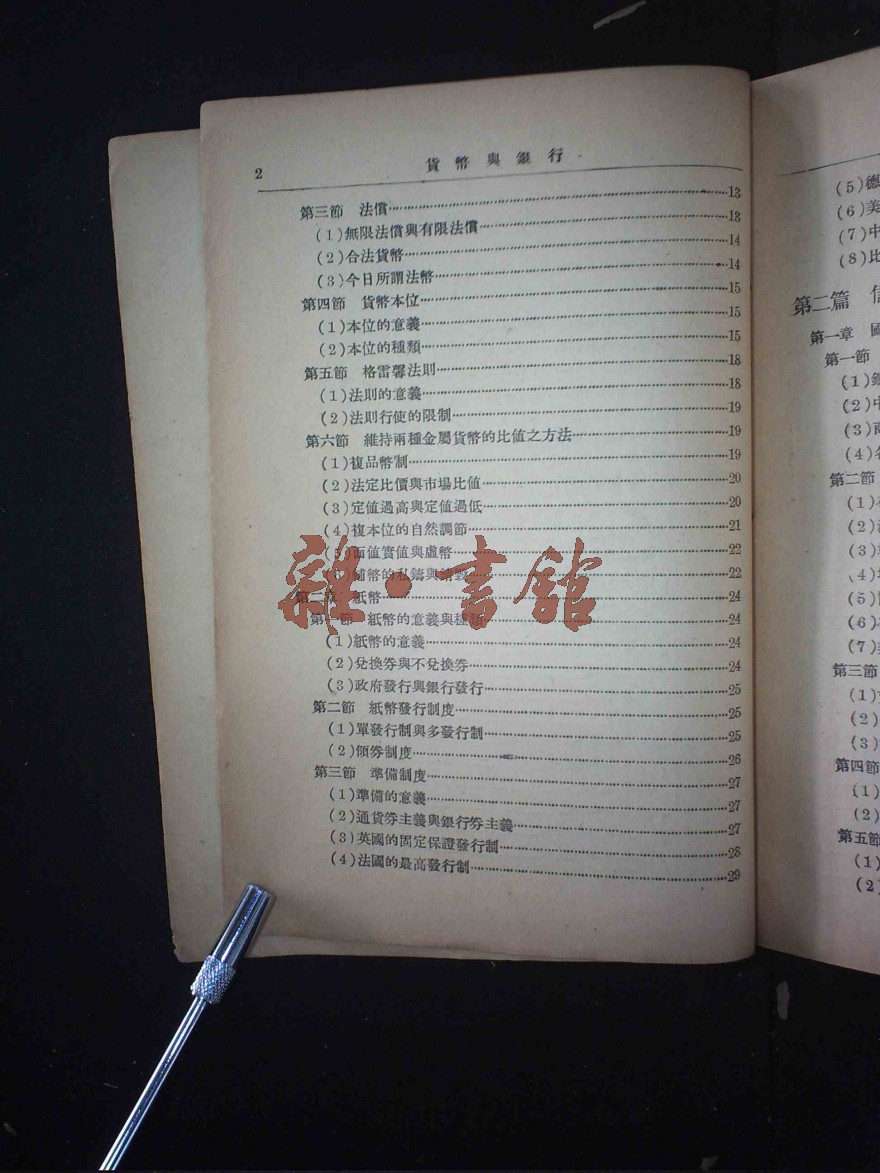 2
貨幣與銀行
第三節 法償……13
(1)無限法償與有限法償……13
(2)合法貨幣……14
(3)今日所謂法幣……14
第四節 貨幣本位……15
(1)本位的意義……15
(2)本位的種類……15
第五節 格雷馨法則……18
(1)法則的意義……18
(2)法則行使的限制……19
第六節 維持兩種金屬貨幣的比值之方法……19
(1)複品幣制……19
(2)法定比價與市場比值……20
(3)定值過高與定值過低……20
(4)複本位的自然調節……21
(5)面值實值與虛幣……22
幣的私鑄與……22
第二章 紙幣……24
第一節 紙幣的意義與種類……24
(1)紙幣的意義……24
(2)兌換券與不兌換券……24
(3)政府發行與銀行發行……25
第二節 紙幣發行制度……25
(1)單發行制與多發行制……25
(2)領券制度……26
第三節 準備制度……27
(1)準備的意義……27
(2)通貨券主義與銀行券主義……27
(3)英國的固定保證發行制……28
(4)法國的最高發行制……29
雜·書館
(5)德
(6)美
(7)中
(8)比
第二篇 信
第一章 國
第一節
(1)銀
(2)中
(3)商
(4)各
第二節
(1)
(2)
(3)
(4)
(5)
(6)
(7)
第三節
(1)
(2)
(3)
第四節
(1)
(2)
第五節
(1)
(2)